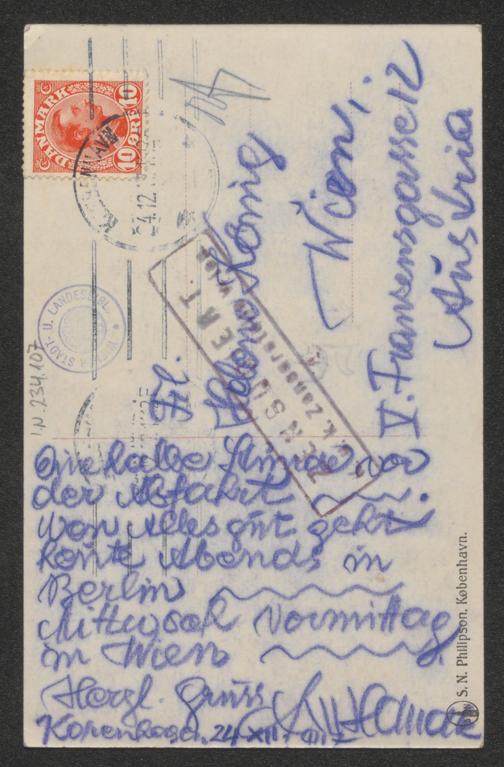 DANMARK
10 ØRE 10
24.12.
WIENER STADT- U. LANDESBIBL.
I.N. 234.107
ZENSURIERT.
k. k. Zensurstelle Wien
Frl.
Helene König
Wien,
V. Franzensgasse 12
Austria
Eine halbe Stunde vor
der Abfahrt
Wenn Alles gut geht
heute Abends in
Berlin
Mittwoch Vormittag
in Wien
Herzl. Gruss
Kopenhagen, 24 XII
S. N. Philipson. København.